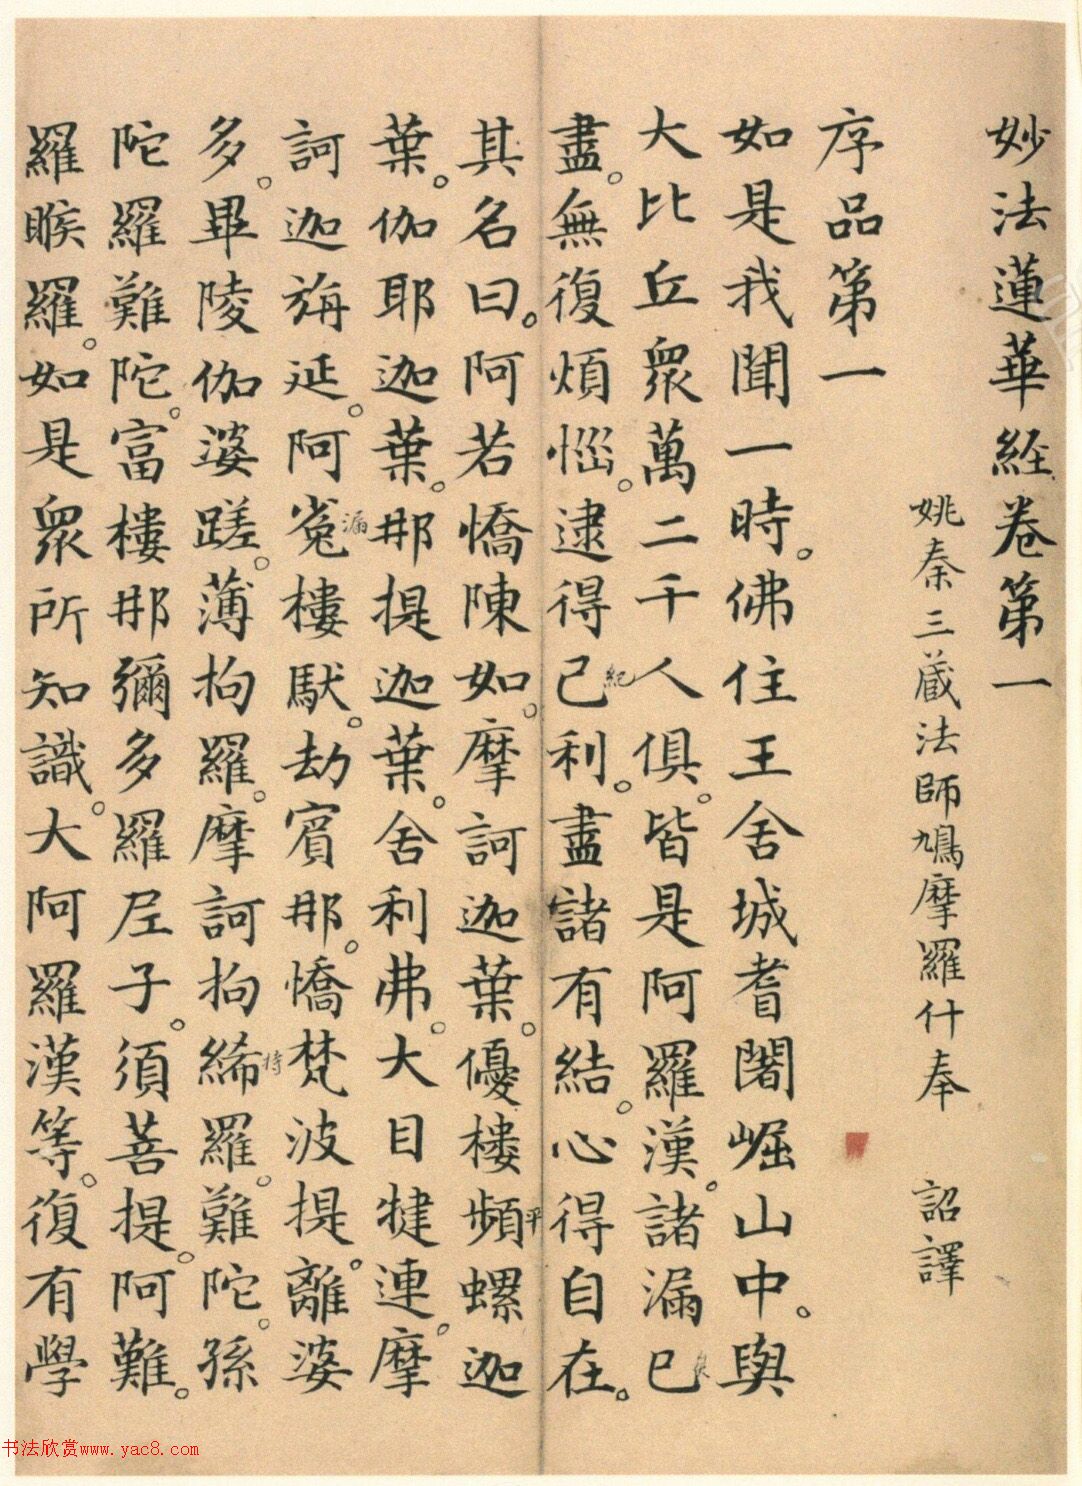 妙法蓮華經卷第一
姚秦三藏法師鳩摩羅什奉 詔譯
序品第一
如是我聞一時。佛住王舍城耆闍崛山中。與
大比丘眾萬二千人俱。皆是阿羅漢。諸漏已
盡。無復煩惱。逮得己紀利。盡諸有結。心得自在。
其名曰。阿若憍陳如。摩訶迦葉。優樓頻平螺迦
葉。伽耶迦葉。那提迦葉。舍利弗。大目犍連。摩
訶迦旃延。阿㝹漏樓馱。劫賓那。憍梵波提。離婆
多。畢陵伽婆蹉。薄拘羅。摩訶拘絺羅。難陀。孫
陀羅難陀。富樓那彌多羅尼子。須菩提。阿難。
羅睺羅。如是眾所知識。大阿羅漢等。復有學
书法欣赏www.yac8.com